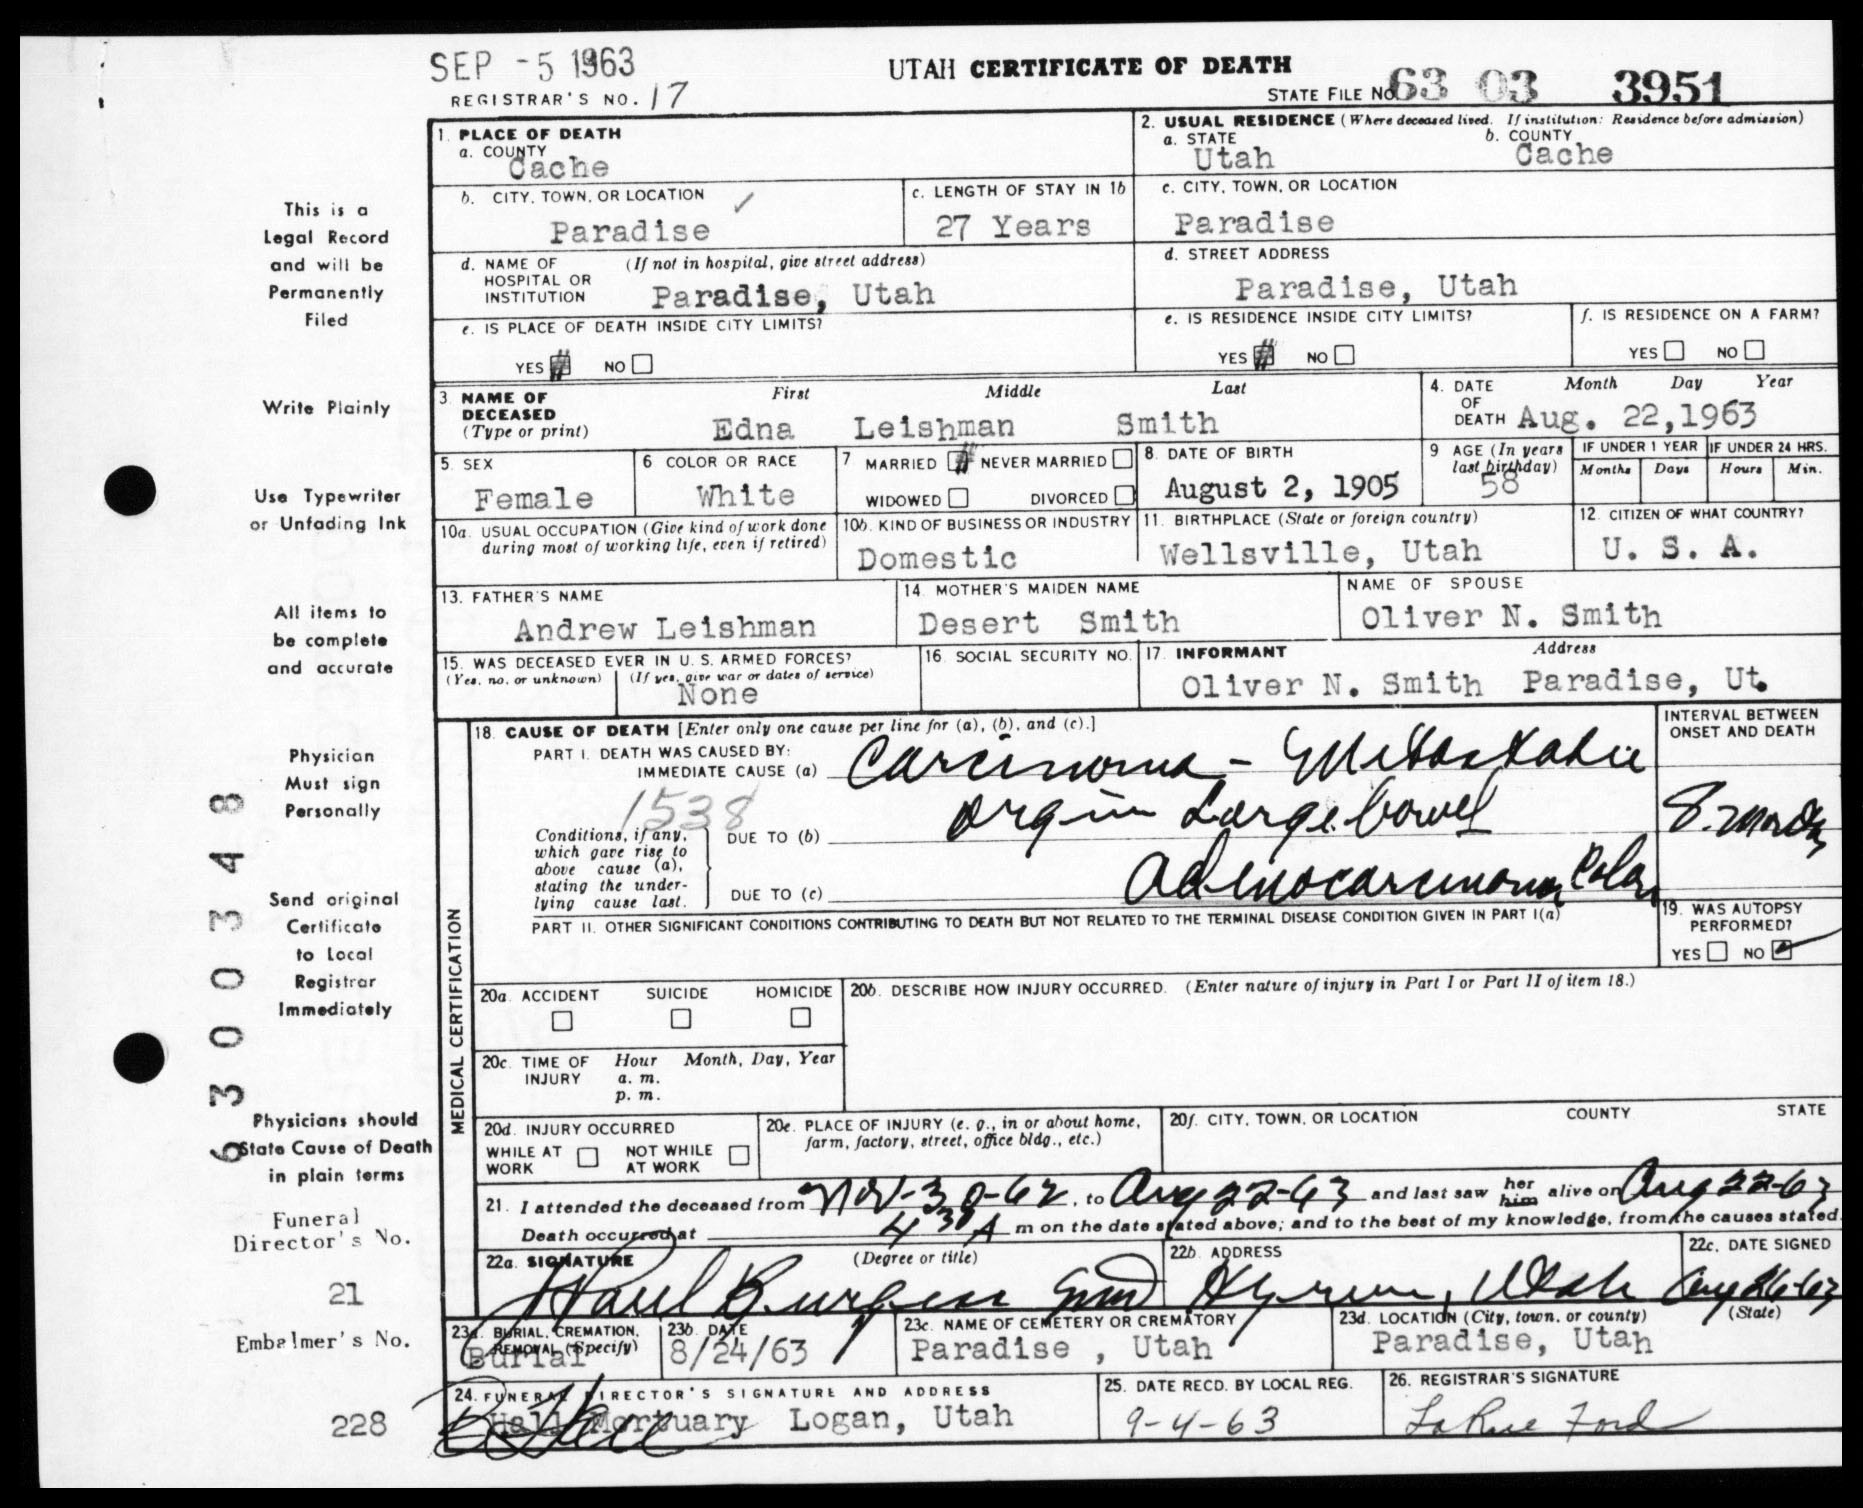 SEP -5 1963
UTAH CERTIFICATE OF DEATH
REGISTRAR'S NO. 17
STATE FILE NO. 63 03 3951
1. PLACE OF DEATH
a. COUNTY
Cache
2. USUAL RESIDENCE (Where deceased lived. If institution: Residence before admission)
a. STATE
Utah
b. COUNTY
Cache
b. CITY, TOWN, OR LOCATION
Paradise
c. LENGTH OF STAY IN 1b
27 Years
c. CITY, TOWN, OR LOCATION
Paradise
d. NAME OF HOSPITAL OR INSTITUTION
(If not in hospital, give street address)
Paradise, Utah
d. STREET ADDRESS
Paradise, Utah
e. IS PLACE OF DEATH INSIDE CITY LIMITS?
YES NO
e. IS RESIDENCE INSIDE CITY LIMITS?
YES NO
f. IS RESIDENCE ON A FARM?
YES NO
3. NAME OF DECEASED (Type or print)
First Middle Last
Edna Leishman Smith
4. DATE OF DEATH
Month Day Year
Aug. 22,1963
5. SEX
Female
6 COLOR OR RACE
White
7. MARRIED NEVER MARRIED
WIDOWED DIVORCED
8. DATE OF BIRTH
August 2, 1905
9 AGE (In years last birthday)
58
IF UNDER 1 YEAR
Months Days
IF UNDER 24 HRS.
Hours Min.
10a. USUAL OCCUPATION (Give kind of work done during most of working life, even if retired)
10b. KIND OF BUSINESS OR INDUSTRY
Domestic
11. BIRTHPLACE (State or foreign country)
Wellsville, Utah
12. CITIZEN OF WHAT COUNTRY?
U. S. A.
13. FATHER'S NAME
Andrew Leishman
14. MOTHER'S MAIDEN NAME
Desert Smith
NAME OF SPOUSE
Oliver N. Smith
15. WAS DECEASED EVER IN U. S. ARMED FORCES?
(Yes, no, or unknown) (If yes, give war or dates of service)
None
16. SOCIAL SECURITY NO.
17. INFORMANT
Address
Oliver N. Smith Paradise, Ut.
MEDICAL CERTIFICATION
18. CAUSE OF DEATH [Enter only one cause per line for (a), (b), and (c).]
PART I. DEATH WAS CAUSED BY:
IMMEDIATE CAUSE (a) Carcinoma - Metastatic
1538
Conditions, if any, which gave rise to above cause (a), stating the underlying cause last.
DUE TO (b) orgin Large bowel
DUE TO (c) Adenocarcinoma Colon
INTERVAL BETWEEN ONSET AND DEATH
8. months
PART II. OTHER SIGNIFICANT CONDITIONS CONTRIBUTING TO DEATH BUT NOT RELATED TO THE TERMINAL DISEASE CONDITION GIVEN IN PART I(a)
19. WAS AUTOPSY PERFORMED?
YES NO
20a. ACCIDENT SUICIDE HOMICIDE
20b. DESCRIBE HOW INJURY OCCURRED. (Enter nature of injury in Part I or Part II of item 18.)
20c. TIME OF INJURY
Hour Month, Day, Year
a. m.
p. m.
20d. INJURY OCCURRED
WHILE AT WORK NOT WHILE AT WORK
20e. PLACE OF INJURY (e. g., in or about home, farm, factory, street, office bldg., etc.)
20f. CITY, TOWN, OR LOCATION COUNTY STATE
21. I attended the deceased from Nov-30-62, to Aug 22-63 and last saw her him alive on Aug 22-63
Death occurred at 4 30 A m on the date stated above; and to the best of my knowledge, from the causes stated.
22a. SIGNATURE (Degree or title)
Paul Burgess MD
22b. ADDRESS
Hyrum, Utah
22c. DATE SIGNED
Aug 26-63
23a. BURIAL, CREMATION, REMOVAL (Specify)
Burial
23b. DATE
8/24/63
23c. NAME OF CEMETERY OR CREMATORY
Paradise , Utah
23d. LOCATION (City, town, or county) (State)
Paradise, Utah
24. FUNERAL DIRECTOR'S SIGNATURE AND ADDRESS
Hall Mortuary Logan, Utah
25. DATE RECD. BY LOCAL REG.
9-4-63
26. REGISTRAR'S SIGNATURE
LaRue Ford
This is a
Legal Record
and will be
Permanently
Filed
Write Plainly
Use Typewriter
or Unfading Ink
All items to
be complete
and accurate
Physician
Must sign
Personally
Send original
Certificate
to Local
Registrar
Immediately
Physicians should
State Cause of Death
in plain terms
Funeral
Director's No.
21
Embalmer's No.
228
6300348